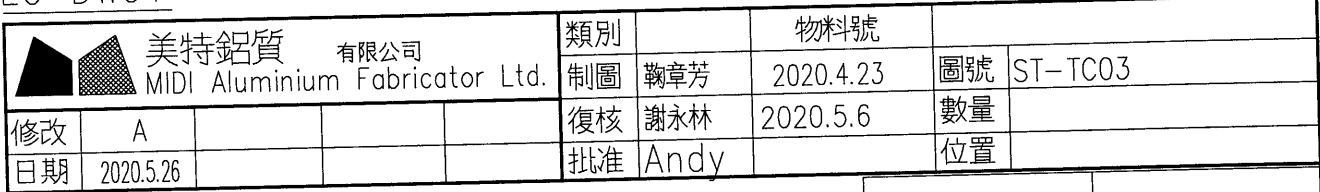 美特鋁質 有限公司
MIDI Aluminium Fabricator Ltd.
修改 A
日期 2020.5.26
類別 物料號
制圖 鞠章芳 2020.4.23 圖號 ST-TC03
復核 謝永林 2020.5.6 數量
批准 Andy 位置